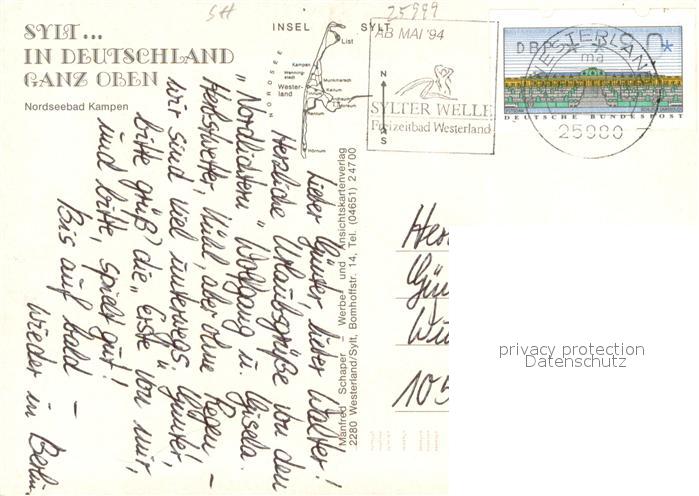 SH
25999
SYLT...
IN DEUTSCHLAND
GANZ OBEN
Nordseebad Kampen
INSEL SYLT
NORDSEE
List
Kampen
Wenning-
stedt
Wester-
land
Munkmarsch
Keitum
Rantum
Hörnum
N
S
AB MAI '94
SYLTER WELLE
Freizeitbad Westerland
DBP
DEUTSCHE BUNDESPOST
WESTERLAND
ma
25980
Lieber Günter, lieber Walter!
Herzliche Urlaubsgrüße von den
"Nordlichtern" Wolfgang u. Gisela.
Herbstwetter, kühl, aber ohne Regen –
wir sind viel unterwegs. Günter,
bitte grüß' die "Erste" von mir,
und bitte, spielt gut!
Bis auf bald –
wieder in Berlin.
Manfred Schaper – Werbe- und Ansichtskartenverlag
2280 Westerland/Sylt, Bomhoffstr. 14, Tel. (04651) 24700
105
privacy protection
Datenschutz